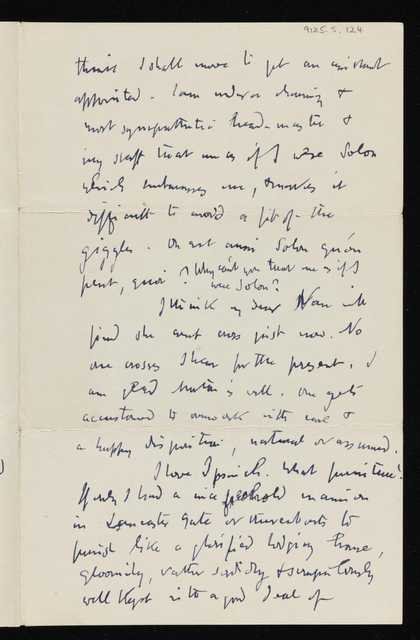 9125.5.124
think I shall move to get an assistant
appointed. I am under a charming &
most sympathetic head-master &
my staff treat me as if I were Solon
which embarrasses me, & makes it
difficult to avoid a fit of the
giggles. On est aussi Solon qu'on
peut, quoi? Why can't you treat me as if I
were Solon?
I think my dear Nan will
find she can't cross just now. No
one crosses I hear for the present. I
am glad is well. One gets
accustomed to overwork with care &
a happy disposition, natural or assumed.
I love Ipswich. What furniture!
If only I had a nice freehold mansion
in Lancaster Gate or thereabouts to
furnish like a glorified lodging house,
gloomily, rather & scrupulously
well kept with a good deal of